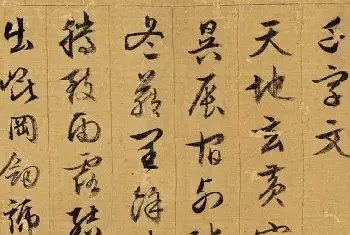 千字文
天地玄黃宇
昃辰宿列
冬藏閏餘
騰致雨露結
出崐岡劍號